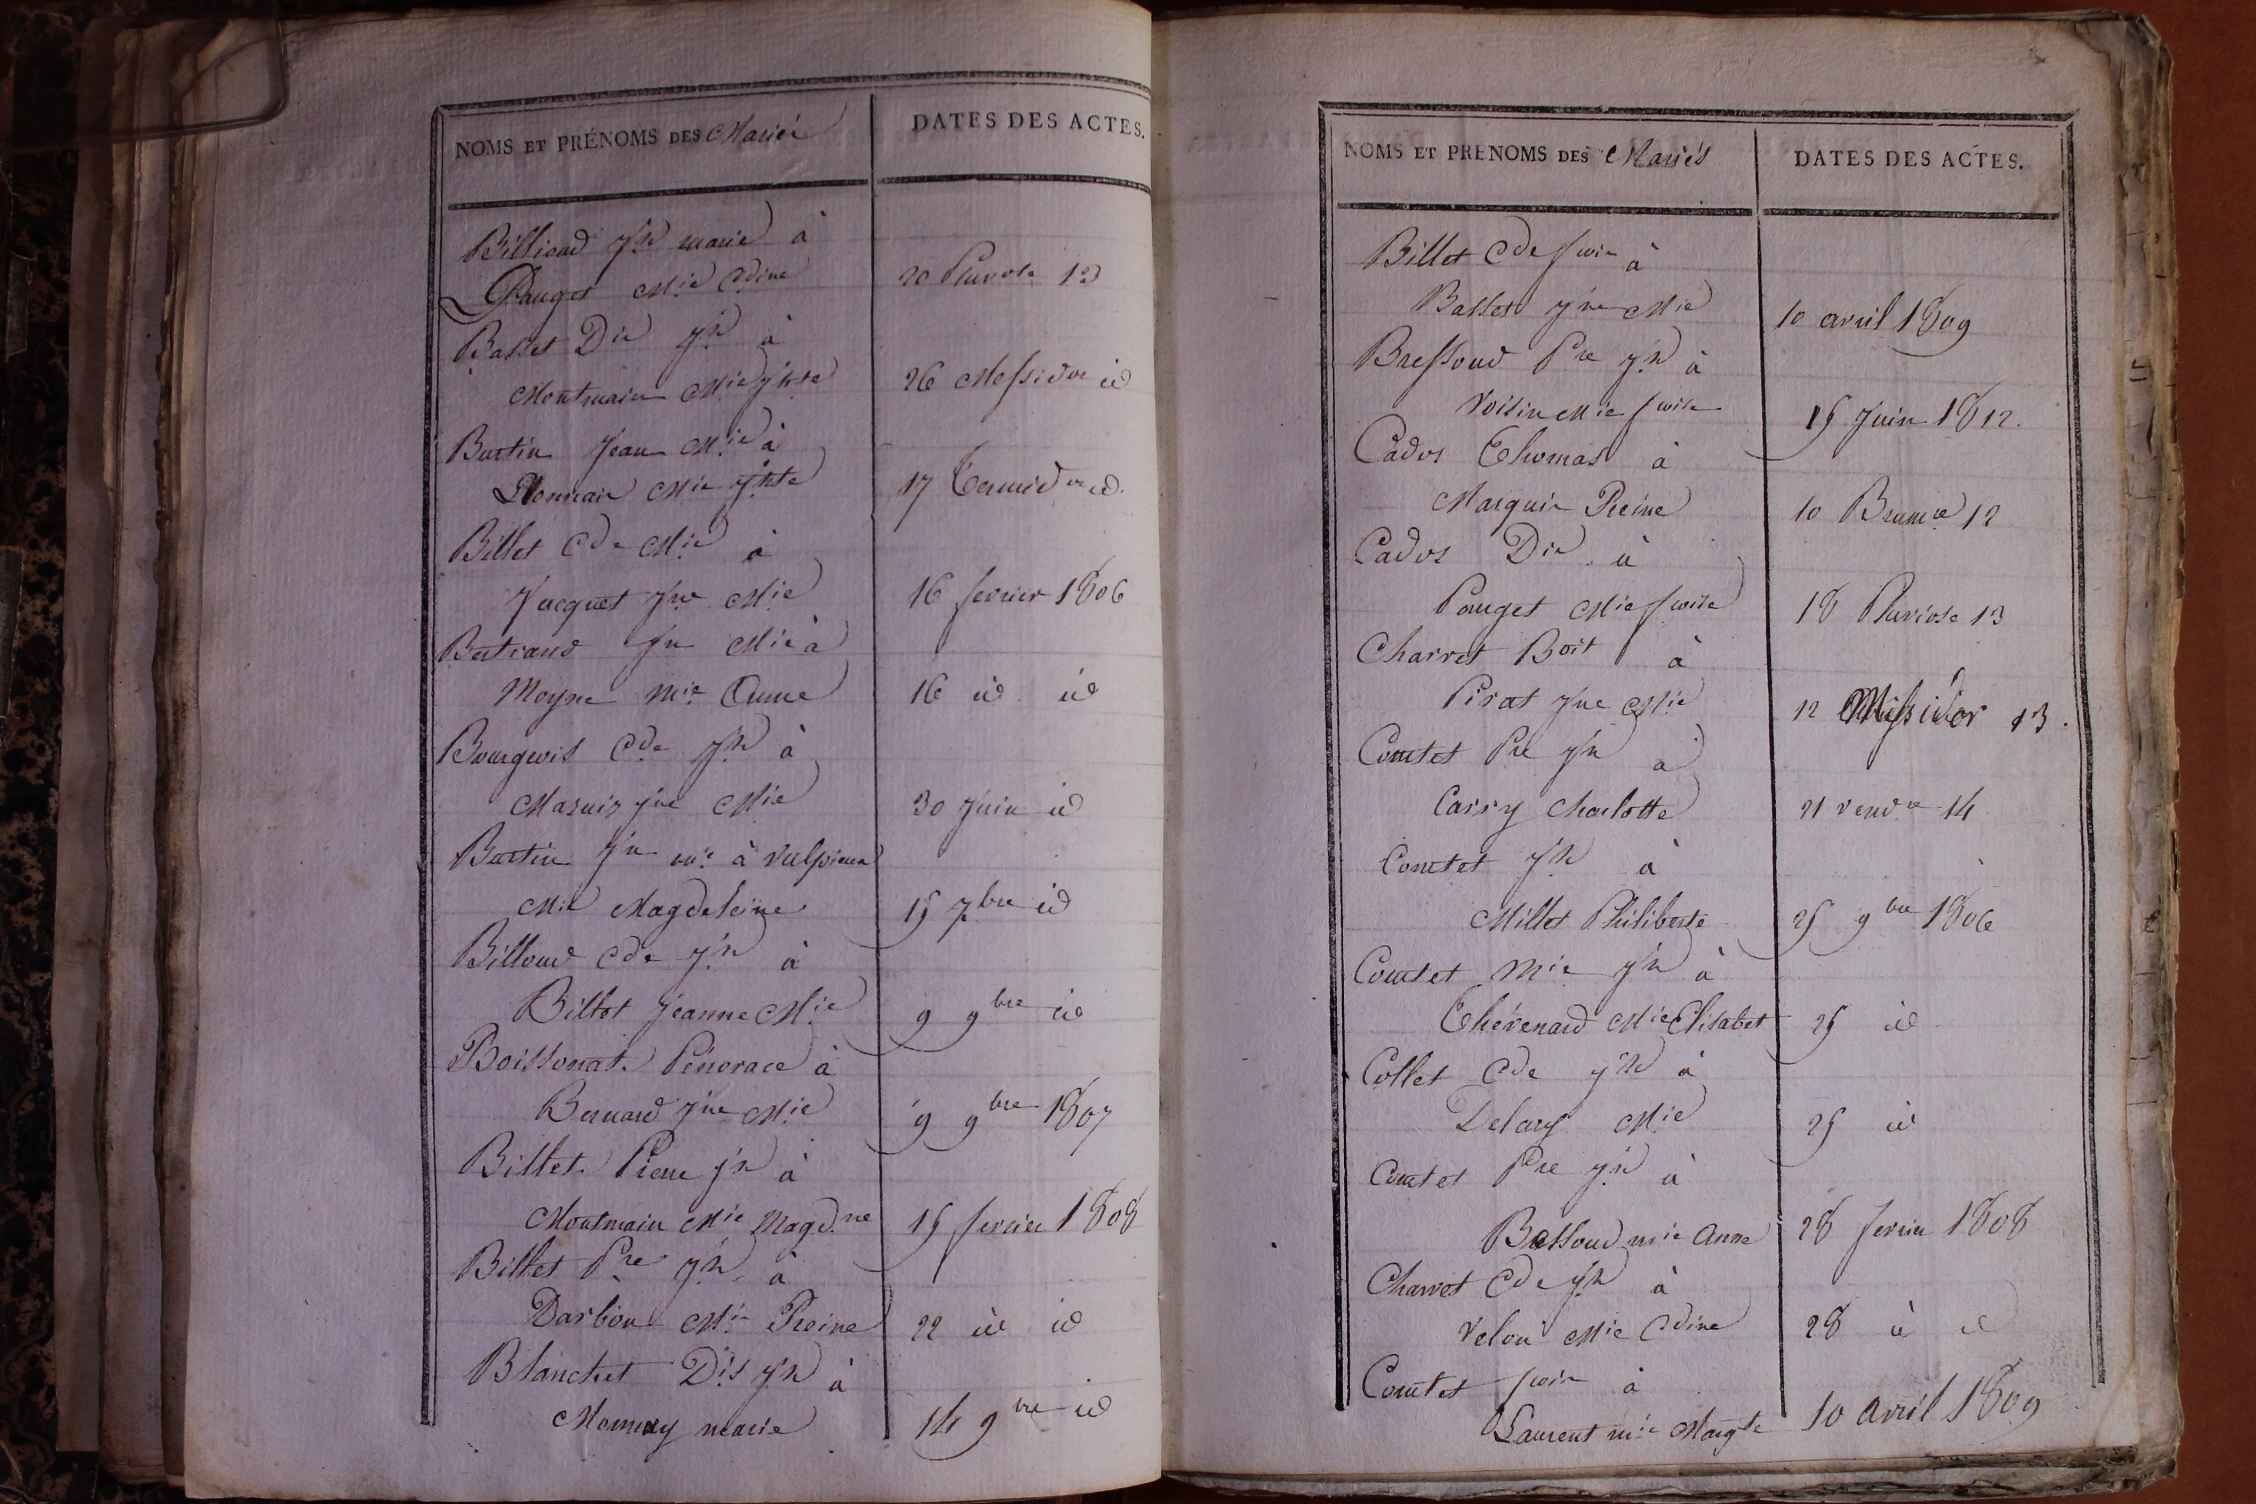 NOMS ET PRÉNOMS DES Mariés
DATES DES ACTES.
Billioud Jn marie à
Pauget Mie Cdine 20 Pluviose 13
Basset Dis Jn à
Montmain Mie Jhte 26 Messidor id
Burtin Jean Mie à
Monnier Mie Jhte 17 Termidor id.
Billet Cde Mie à
Jacquet Jne Mie 16 fevrier 1806
Bertrand Jn Mie à
Moyne Mie Anne 16 id id
Bourgeois Cde Jn à
Masuir Jne Mie 30 Juin id
Burtin Jn mie à Vulpieux
Mie Magdeleine 15 7bre id
Billoud Cde Jn à
Billet Jeanne Mie 9 9bre id
Boissonat à
Bernard Jne Mie 9 9bre 1807
Billet Pierre Jn à
Montmain Mie Magdne 15 fevrier 1808
Billet Pre Jn à
Darbon Mie Reine 22 id id
Blanchet Dis Jn à
Monnay marie 14 9bre id
NOMS ET PRENOMS DES Mariés
DATES DES ACTES.
Billet Cde fois à
Basset Jne Mie 10 avril 1809
Bressoud Pre Jn à
Voisin Mie foise 15 Juin 1812.
Cados Thomas à
Marquis Reine 10 Brumre 12
Cados Dis à
Pauget Mie foise 18 Pluviose 13
Charret Boit à
Pirat Jne Mie 12 Messidor 13.
Comtet Pre Jn à
Carry Charlotte 21 Vendre 14
Comtet Jn à
Millet Philiberte 25 9bre 1806
Comtet Mie Jn à
Thévenard Mie Elisabet 25 id
Collet Cde Jn à
Delary Mie 25 id
Comtet Pre Jn à
Bressoud mie Anne 28 fevrier 1808
Charvet Cde Jn à
Velon Mie Cdine 28 id id
Comtet fois à
Laurent mie Margte 10 avril 1809